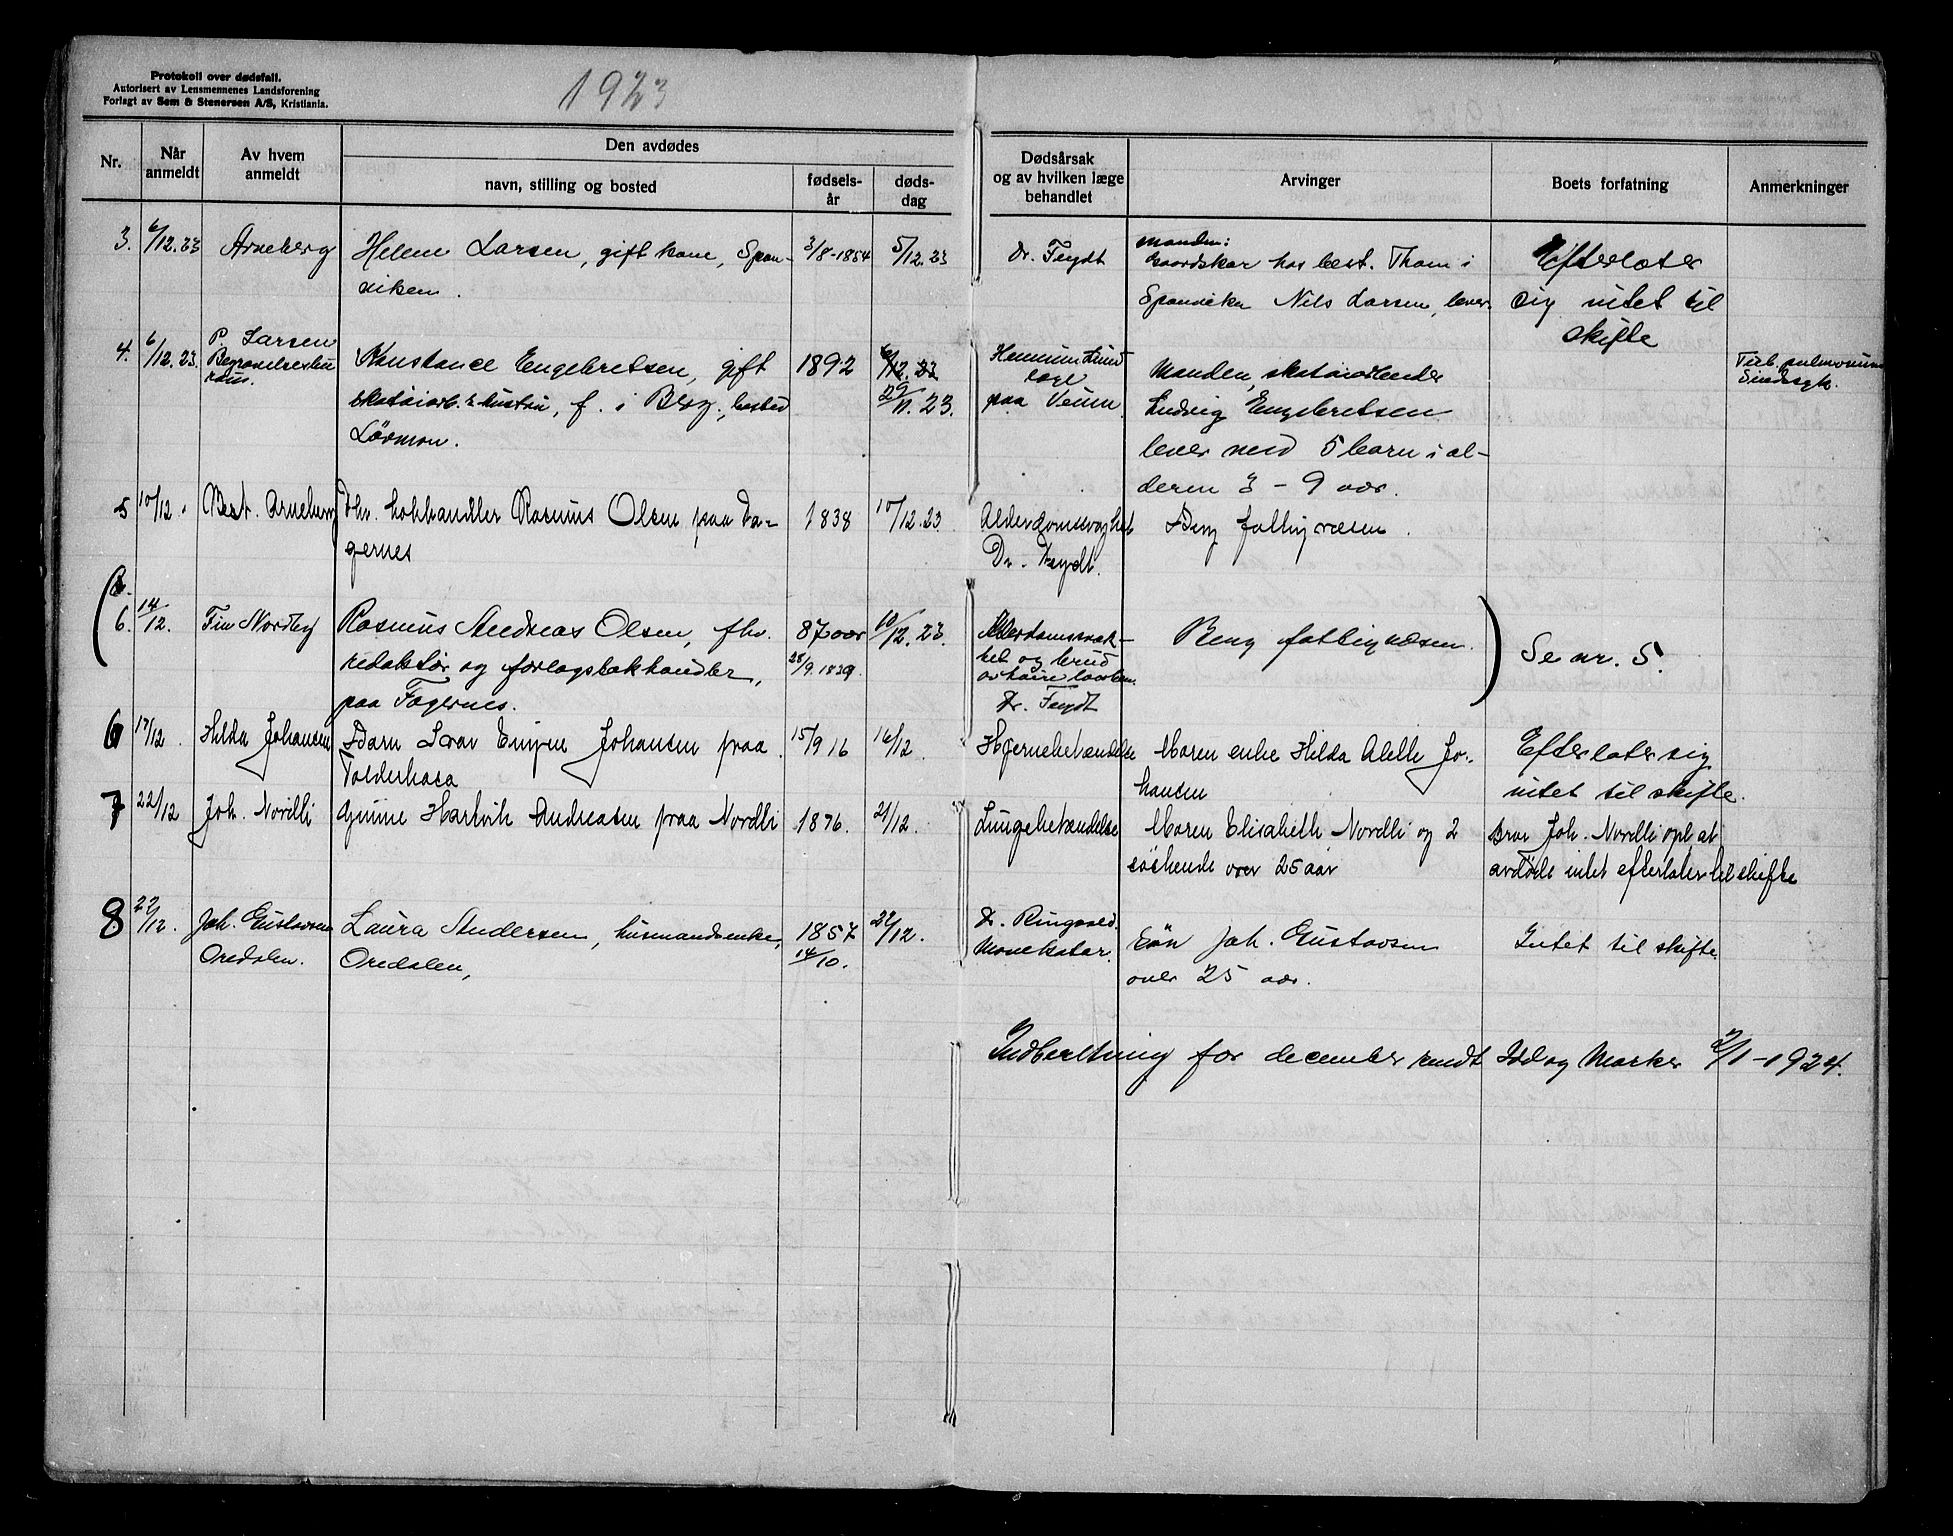 Protokoll over dødsfall.
Autorisert av Lensmennenes Landsforening
Forlagt av Sem & Stenersen A/S, Kristiania.
1923
Nr.
Når
anmeldt
Av hvem
anmeldt
Den avdødes
navn, stilling og bosted
fødsels-
år
døds-
dag
Dødsårsak
og av hvilken læge
behandlet
Arvinger
Boets forfatning
Anmerkninger
3. 6/12.23 Arneberg Helene Larsen, gift kone, Spon- 3/8-1854 5/12.23
viken.
Dr. Feydt
manden:
Gaardskar hos best. Thom i
Sponvika Nils Larsen, lever.
Efterlater
sig intet til
skifte
4. 6/12.23. P. Larsen
Begravelsesbu
raa.
Konstance Engebretsen, gift
skotøiarb. hustru, f. i Berg, bosted
Lövmon.
1892
6/12.23
29/11.23.
læge
paa Veum
Manden, skotøiarbeider
Ludvig Engebretsen
lever med 5 barn i al-
deren 3 - 9 aar.
Tub. pulmonum
Sindssyk.
5 10/12. Best. Arneberg Fhv. bokhandler Rasmus Olsen paa Fa-
gernes
1838 10/12.23
Alderdomssvaghet
Dr. Feydt.
Berg fattigvæsen.
6. 14/12. Finn Nordby Rasmus Andreas Olsen, fhv.
redaktør og forlagsbokhandler,
paa Fagernes.
87 aar
28/9.1839
10/12.23.
Alderdomssvak-
het og brud
av laarben.
Dr. Feydt
Berg fattigvæsen.
Se nr. 5.
6 17/12. Hilda Johansen Barn Ivar Johansen paa
Tolderhaca
15/9 16 16/12.
Hjernebetændelse
Moren enke Hilda Johansen
Efterlater sig
intet til skifte.
7 22/12 Joh. Nordli Gunne Hartvik Andreasen paa Nordli 1876. 21/12.
Lungebetændelse
Moren Elisabeth Nordli og 2
søskende over 25 aar
Bror Joh. Nordli opl. at
avdöde intet efterlater til skifte
8 22/12. Joh. Gustavsen
Oredalen.
Laura Andersen, husmandsenke,
Oredalen,
1857
14/10.
22/12.
Dr. Ringvold.
Mavekatar.
Sön Joh. Gustavsen
over 25 aar.
Intet til skifte
Indberetning for december sendt Idd og Marker 2/1-1924.